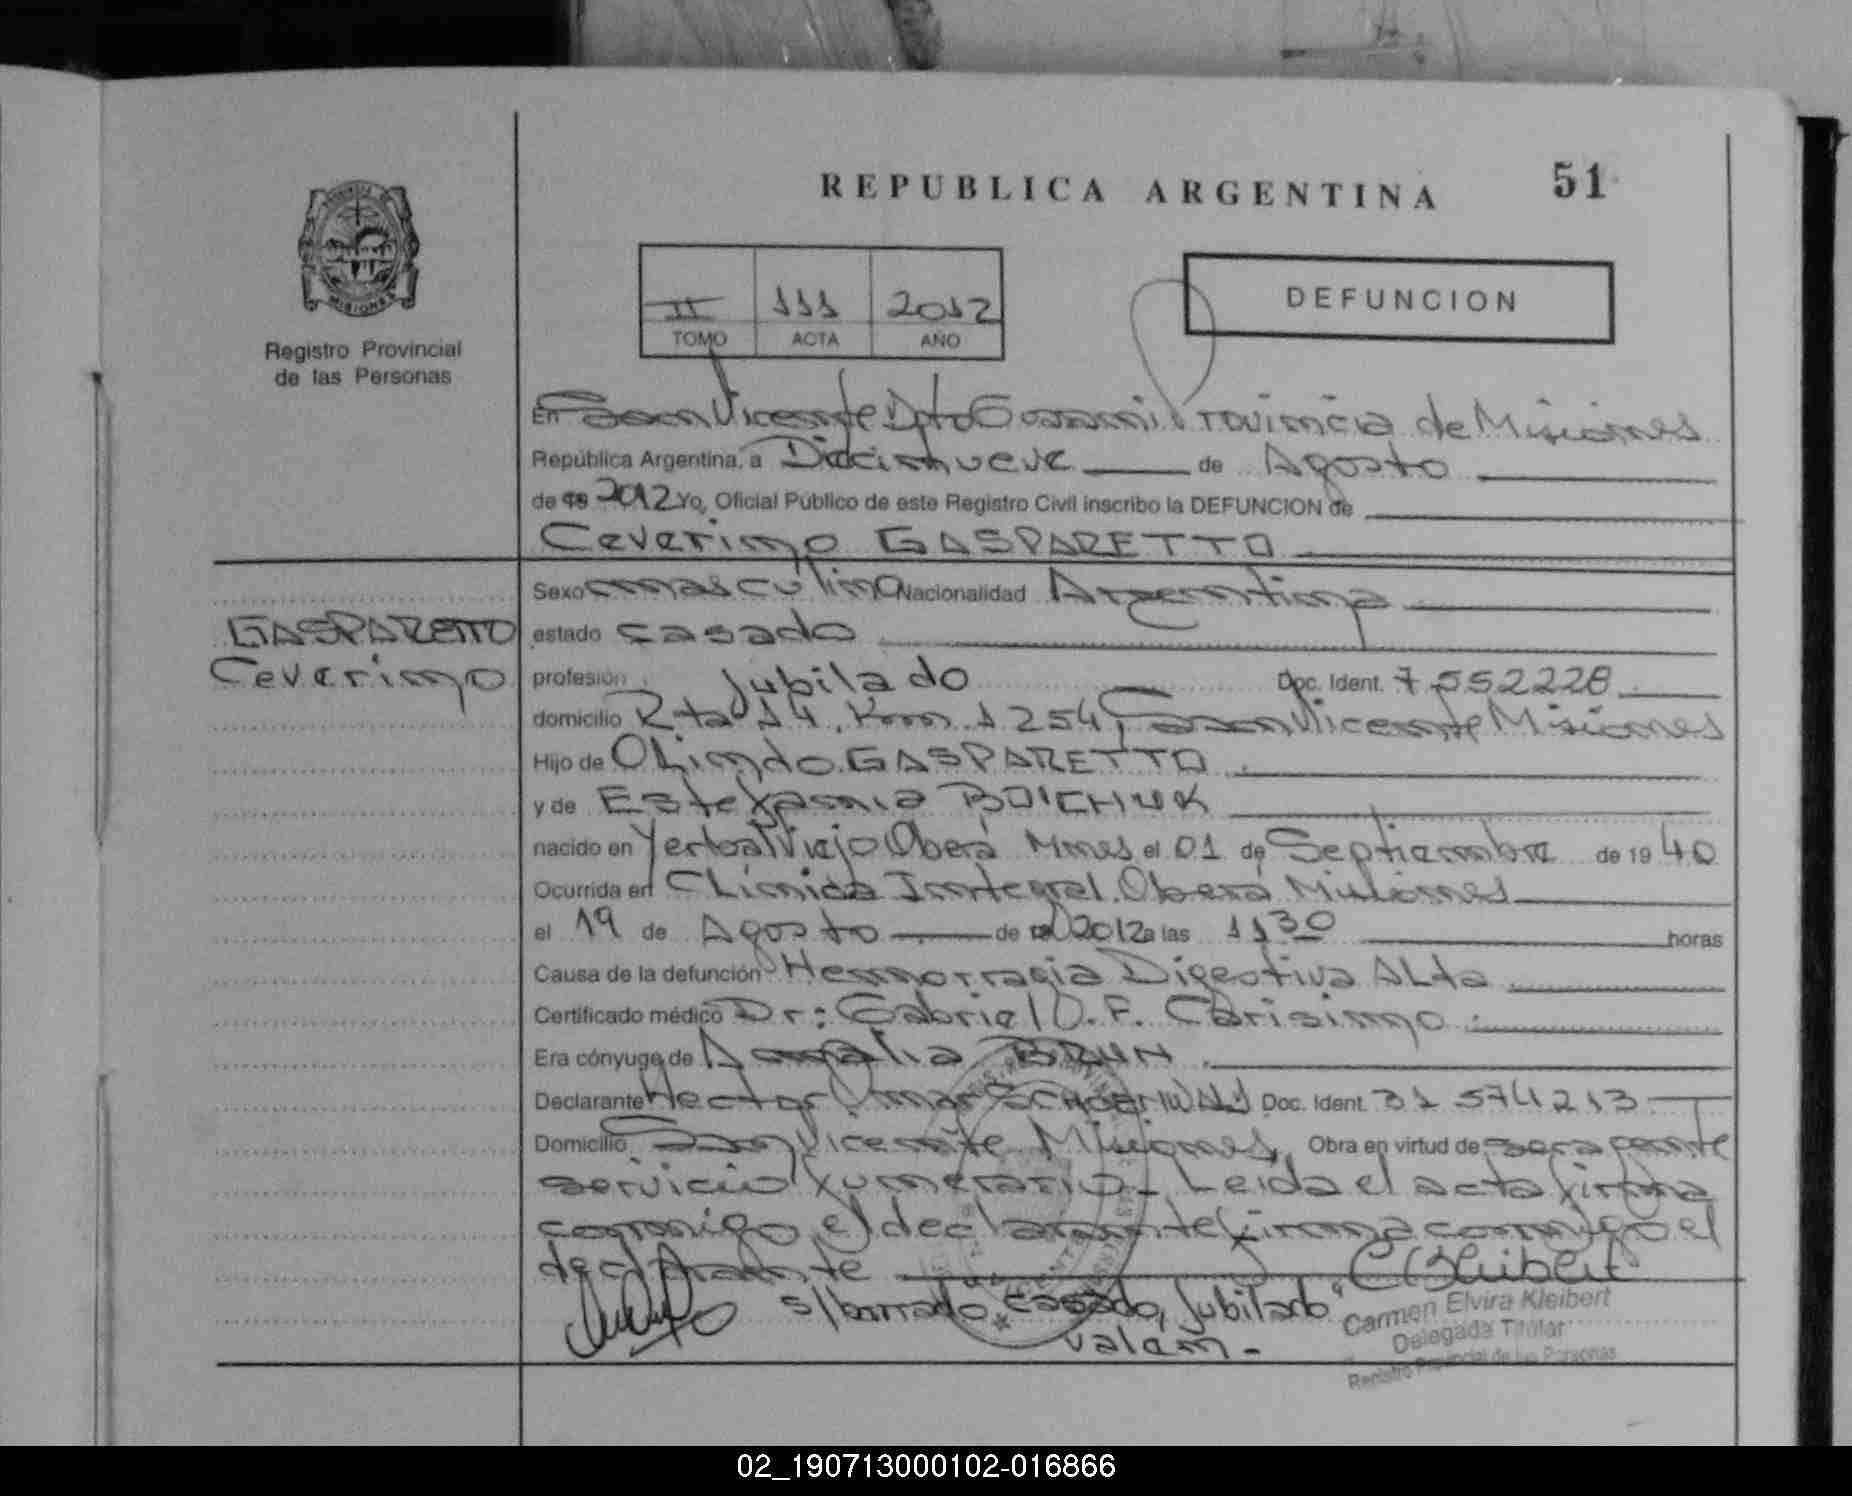 REPUBLICA ARGENTINA
51
MISIONES
Registro Provincial
de las Personas
II 111 2012
TOMO ACTA AÑO
DEFUNCION
En San Vicente Dpto Guarani Provincia de Misiones
República Argentina, a Diecinueve de Agosto
de 19 2012 Yo, Oficial Público de este Registro Civil inscribo la DEFUNCION de
Ceverino GASPARETTO
GASPARETTO
Ceverino
Sexo masculino Nacionalidad Argentina
estado casado
profesión Jubilado Doc. Ident. 7552228
domicilio Rta 14, Km 1254, San Vicente Misiones
Hijo de OLindo GASPARETTO
y de Estefania BOICHUK
nacido en Yerbal Viejo Oberá Mnes el 01 de Septiembre de 19 40
Ocurrida en CLinica Integral Oberá Misiones
el 19 de Agosto de 2012 a las 11 30 horas
Causa de la defunción Hemorragia Digestiva ALta
Certificado médico Dr: Gabriel O. F. Carisimo
Era cónyuge de Amalia BRUN
Declarante Hector Omar Doc. Ident. 31 574213
Domicilio San Vicente Misiones Obra en virtud de ser agente
servicio fumerario - Leida el acta firma
conmigo el declarante firma conmigo el
declarante
s/borrado "casado, Jubilado"
valen.-
Carmen Elvira Kleibert
Delegada Titular
Registro Provincial de las Personas
02_190713000102-016866